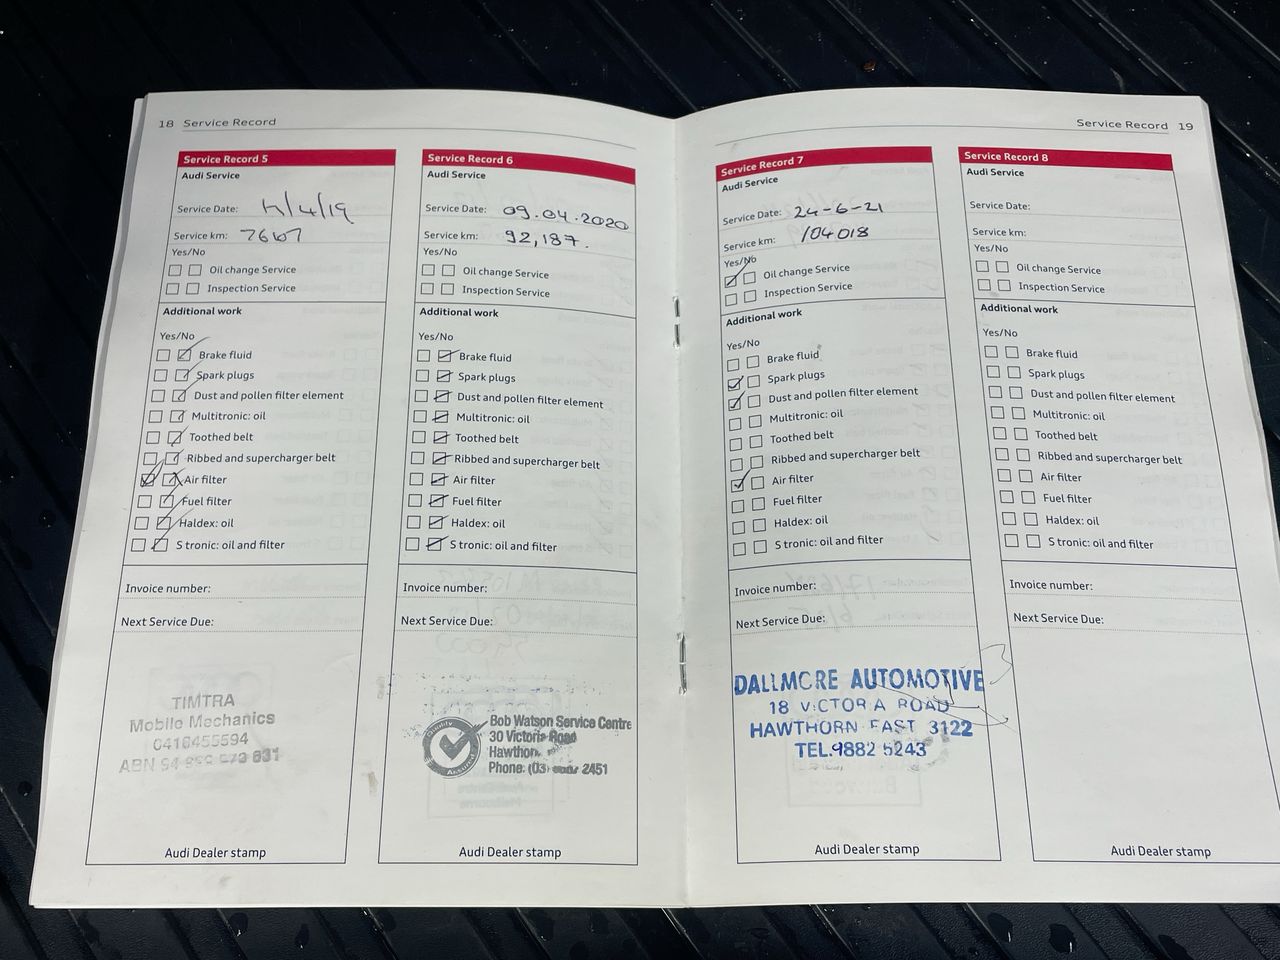 18 Service Record
Service Record 5
Audi Service
Service Date: 11/4/19
Service km: 76167
Yes/No
Oil change Service
Inspection Service
Additional work
Yes/No
Brake fluid
Spark plugs
Dust and pollen filter element
Multitronic: oil
Toothed belt
Ribbed and supercharger belt
Air filter
Fuel filter
Haldex: oil
S tronic: oil and filter
Invoice number:
Next Service Due:
TIMTRA
Mobile Mechanics
0416455594
ABN 94
Audi Dealer stamp
Service Record 6
Audi Service
Service Date: 09.04.2020
Service km: 92,187.
Yes/No
Oil change Service
Inspection Service
Additional work
Yes/No
Brake fluid
Spark plugs
Dust and pollen filter element
Multitronic: oil
Toothed belt
Ribbed and supercharger belt
Air filter
Fuel filter
Haldex: oil
S tronic: oil and filter
Invoice number:
Next Service Due:
Quality
Assured
Bob Watson Service Centre
30 Victoria Road
Hawthorn
Phone: (03) 2451
Audi Dealer stamp
Service Record 19
Service Record 7
Audi Service
Service Date: 24-6-21
Service km: 104018
Yes/No
Oil change Service
Inspection Service
Additional work
Yes/No
Brake fluid
Spark plugs
Dust and pollen filter element
Multitronic: oil
Toothed belt
Ribbed and supercharger belt
Air filter
Fuel filter
Haldex: oil
S tronic: oil and filter
Invoice number:
Next Service Due:
DALLMORE AUTOMOTIVE
18 VICTORIA ROAD
HAWTHORN EAST 3122
TEL.9882 5243
Audi Dealer stamp
Service Record 8
Audi Service
Service Date:
Service km:
Yes/No
Oil change Service
Inspection Service
Additional work
Yes/No
Brake fluid
Spark plugs
Dust and pollen filter element
Multitronic: oil
Toothed belt
Ribbed and supercharger belt
Air filter
Fuel filter
Haldex: oil
S tronic: oil and filter
Invoice number:
Next Service Due:
Audi Dealer stamp